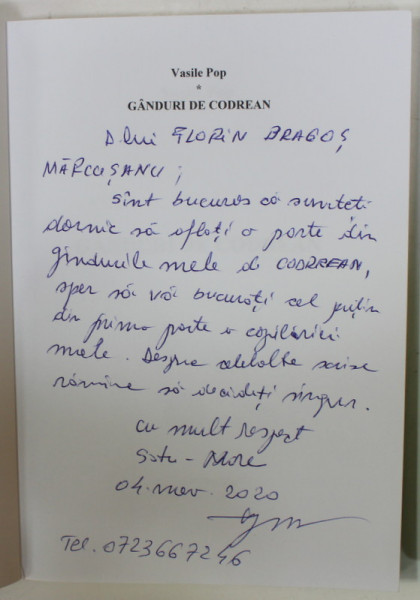 Vasile Pop
*
GÂNDURI DE CODREAN
D-lui FLORIN DRAGOȘ
MĂRCUȘANU ;
Sînt bucuros că sunteti
dornic să aflați o parte din
gîndurile mele de CODREAN,
sper să vă bucurați cel puțin
din prima parte a copilăriei
mele. Despre celelalte scrise
rămîne să decideți singur.
cu mult respect
Satu - Mare
04. nov. 2020
Tel. 0723667246